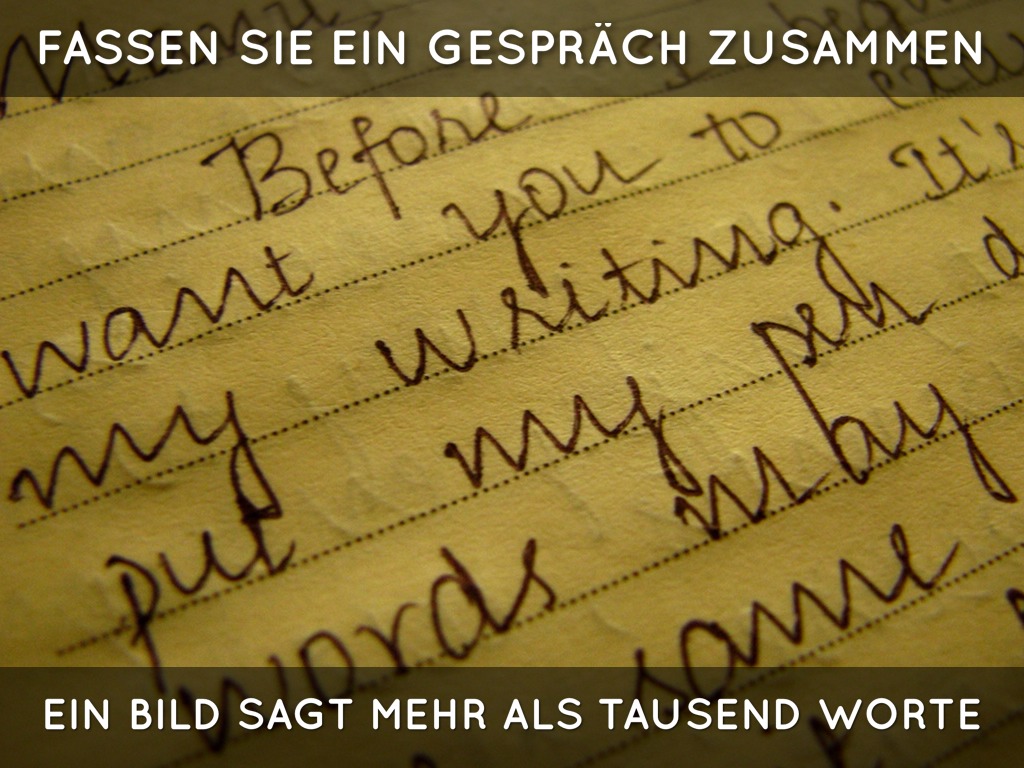 FASSEN SIE EIN GESPRÄCH ZUSAMMEN
Before
want you to
my writing. It's
put my pen d
words may
some
EIN BILD SAGT MEHR ALS TAUSEND WORTE